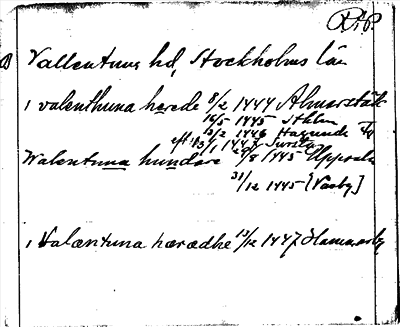 R:P
Vallentuna hd, Stockholms län
i valenthuna herede 8/2 1444 Almarstäk
16/5 1445 Sthlm
13/2 1446 Hagunda
eft. 13/1 1447
Walentuna hundare 20/8 1445 Uppsala
31/12 1445 [Väsby]
i Valæntuna hærædhe 13/12 1447 Hammarby